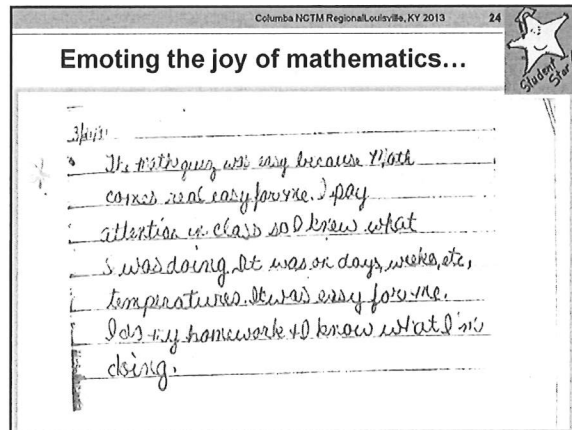 Columba NCTM RegionalLouisville, KY 2013 24
Student Star
Emoting the joy of mathematics...
The math quiz was easy because Math
comes real easy for me. I pay
attention in class so I knew what
I was doing. It was on days, weeks, etc,
temperatures. It was easy for me.
I do my homework & I know what I'm
doing.